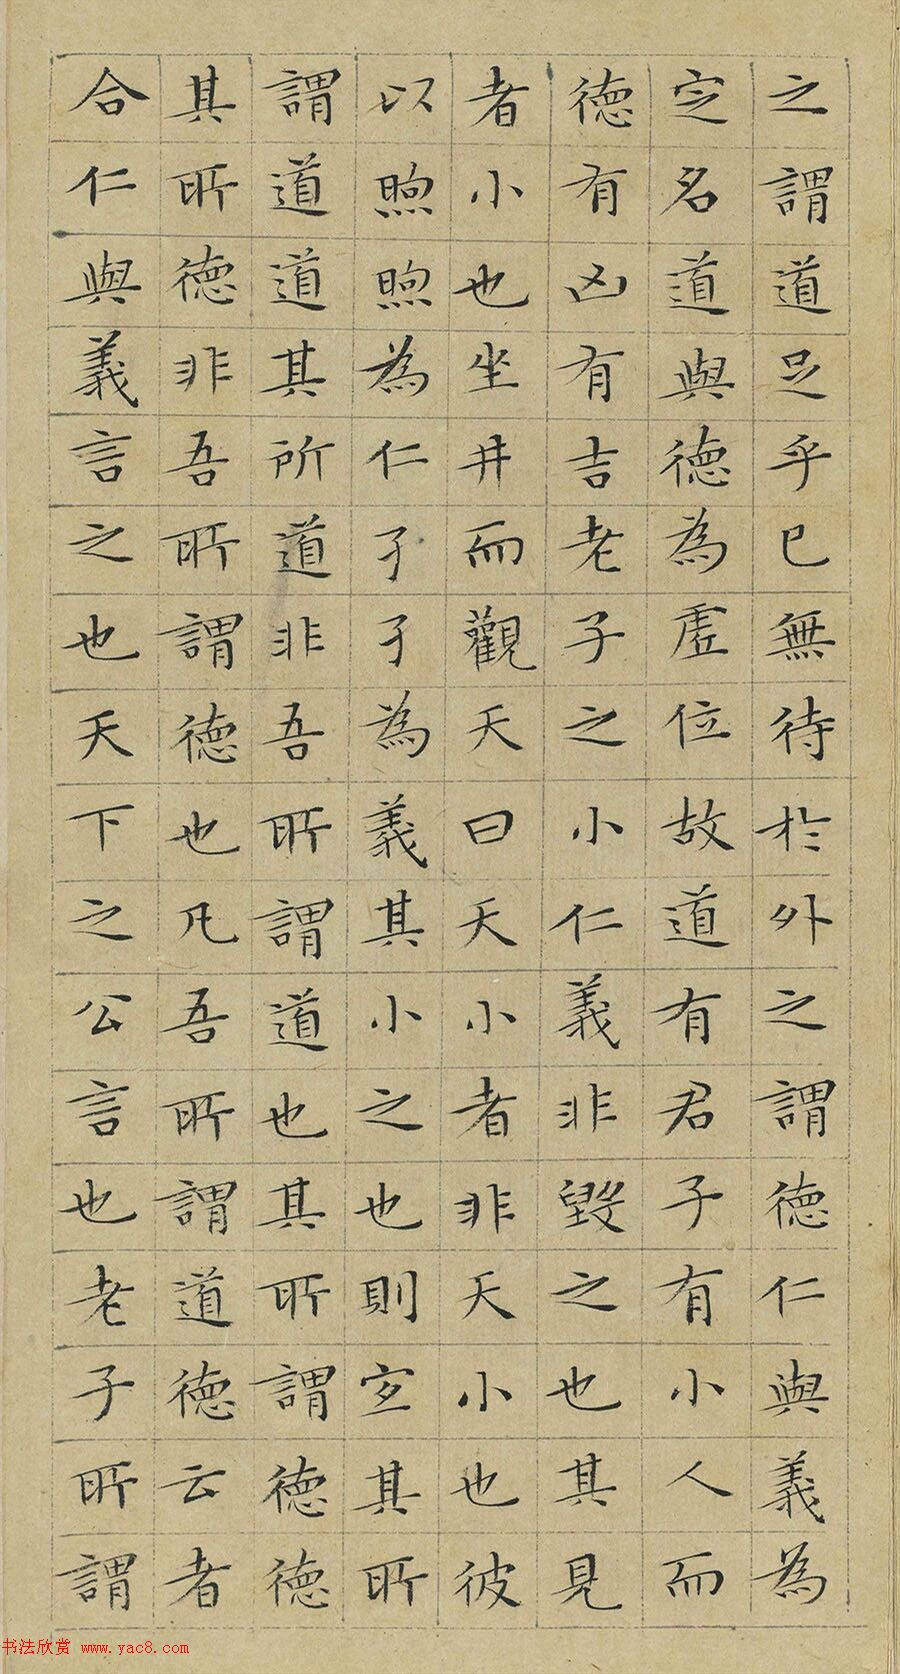 之謂道足乎已無待於外之謂德仁與義為
定名道與德為虛位故道有君子有小人而
德有凶有吉老子之小仁義非毀之也其見
者小也坐井而觀天曰天小者非天小也彼
以煦煦為仁孑孑為義其小之也則宜其所
謂道道其所道非吾所謂道也其所謂德德
其所德非吾所謂德也凡吾所謂道德云者
合仁與義言之也天下之公言也老子所謂
书法欣赏 www.yac8.com